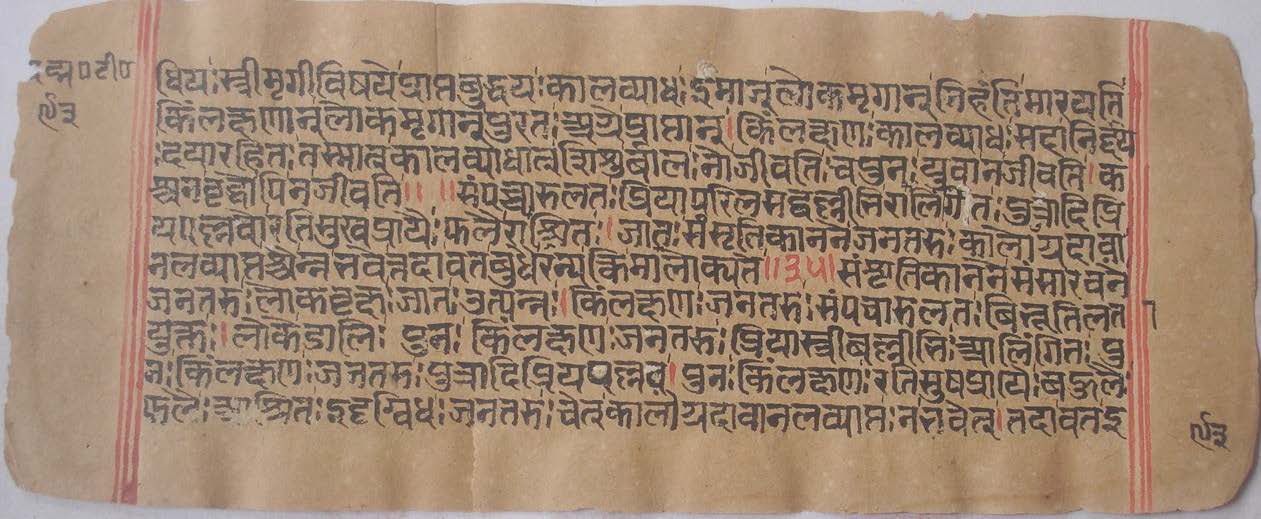 धियः स्त्रीमृगीविषयेप्राप्तबुद्धयः कालव्याधः इमान्लोकमृगान् निहंतिमारयति
किंलक्षणान्लोकमृगान्पुरतः अग्रेप्राप्तान्। किंलक्षणः कालव्याधः सदानिर्दय
दयारहितः तस्मात्कालव्याधात् शिशुर्बालः नोजीवति चपुनः युवानजीवति। क
श्चनवृद्धोपिनजीवति॥ ॥संपच्चारुलतः प्रियापरिलसद्वल्लीभिरालिंगितः पुत्रादिप्रि
यपल्लवोरतिसुखप्रायैः फलैराश्रितः। जातः संसृतिकाननेजनतरुः कालोग्रदावा
नलव्याप्तश्चेन्नभवेत्तदावतबुधैरन्यत्किमालोक्यते॥३५॥संसृतिकाननेसंसारवने
जनतरुः लोकवृक्षः जातः उत्पन्नः। किंलक्षणः जनतरुः संपच्चारुलतः विभूतिलता
युक्तः। पुनः किंलक्षणः जनतरुः प्रियास्त्रीवल्लीभिः आलिंगितः पु
नः किंलक्षणः जनतरुः पुत्रादिप्रियपल्लवः। पुनः किंलक्षणः रतिसुषप्रायैः बहुलैः
फलैः आश्रितः ईदृग्विधः जनतरुः चेत्कालोग्रदावानलव्याप्तः नभवेत्। तदावतइ
९३
९३